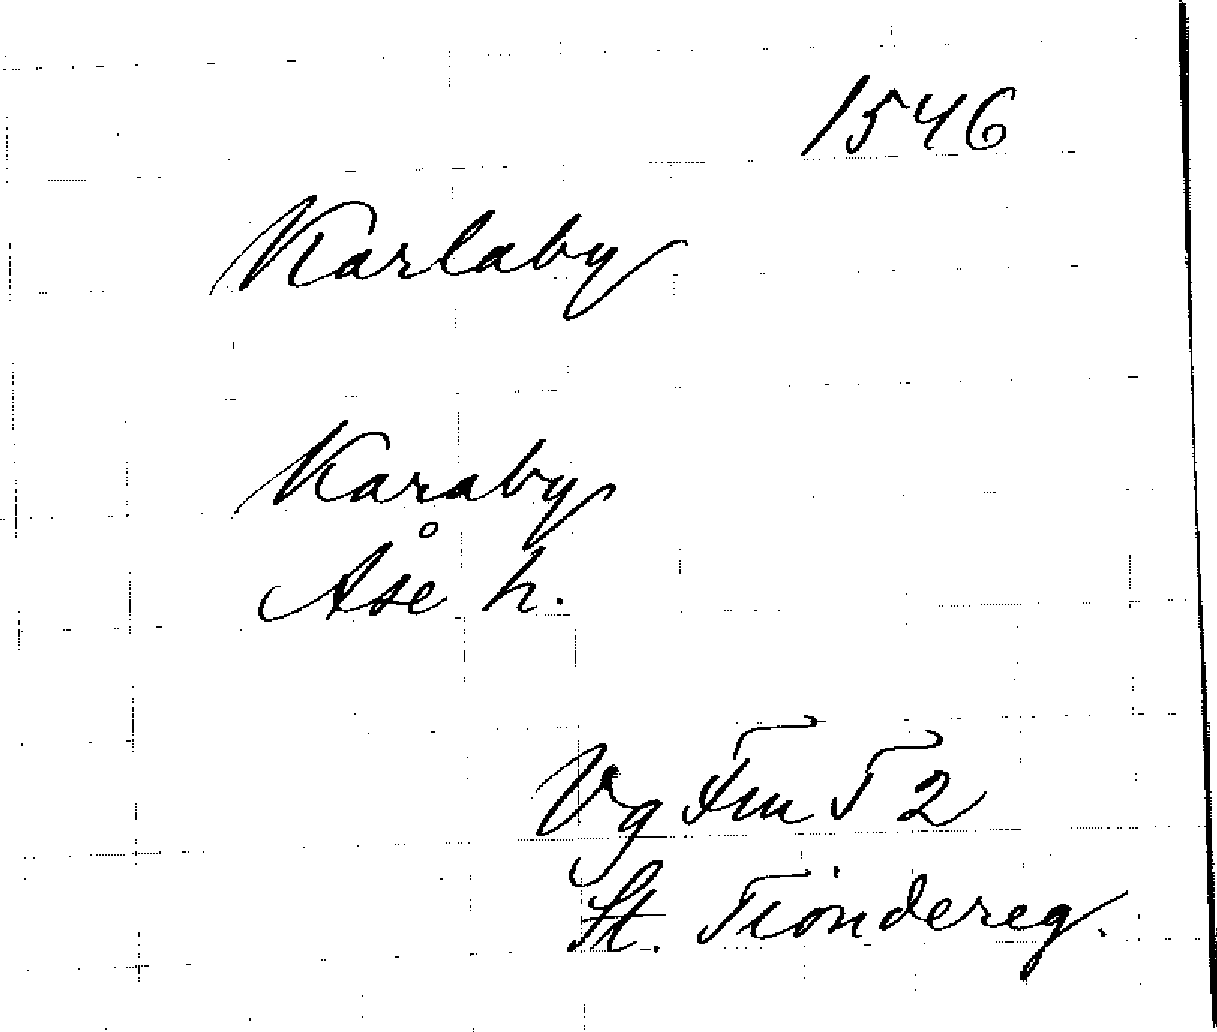 1546
Karlaby
Karaby
Åse h.
Vg Fm T 2
St. Tiondereg.